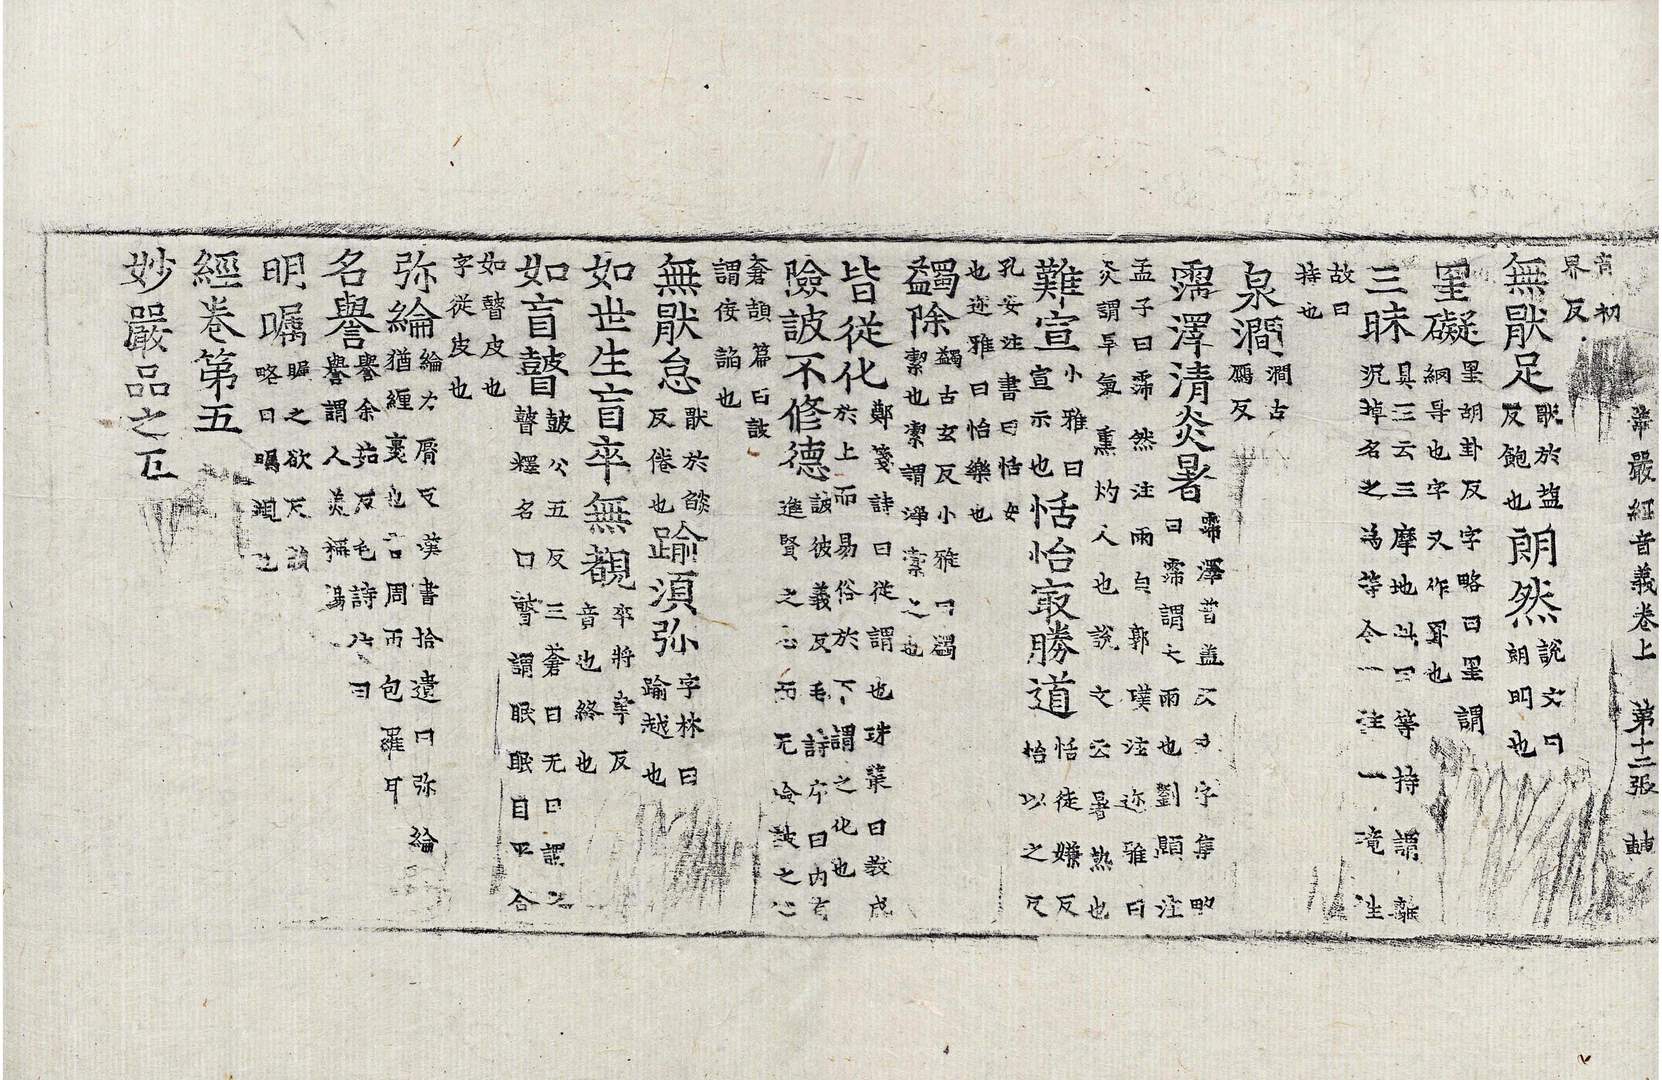 音初
界反
華嚴經音義卷上 第十二張
無猒足猒於鹽反飽也朗然說文曰朗明也
罣礙罣胡卦反字略曰罣謂網导也字又作罫也
三昧具三云三摩地此曰等持謂離沉掉名之為等令一注一境住
故曰持也
泉澗澗古鴈反
霈澤清炎暑霈澤普盖反字集略曰霈謂大雨也劉顯注
孟子曰霈然注雨皃郭璞注迩雅曰炎謂旱氣熏灼人也說文云暑熱也
難宣小雅曰宣示也恬怡㝡勝道恬徒嫌反怡以之反
孔安注書曰恬安也迩雅曰怡樂也
蠲除蠲古玄反小雅曰蠲潔也潔謂淨潔之也
皆從化鄭箋詩曰從謂也珠叢曰教成於上而易俗於下謂之化也
險詖不修德詖彼義反毛詩序曰内有進賢之心而无險詖之心
蒼頡篇曰詖謂佞諂也
無猒怠猒於燄反倦也踰須弥字林曰踰越也
如世生盲卒無覩卒將聿反音也終也
如盲瞽鼓公五反三蒼曰无目謂之瞽釋名曰瞽謂眠眠目平合
如瞽皮也字從皮也
弥綸綸力屑反漢書拾遺曰弥綸猶纏裹也言周帀包羅耳
名譽譽余茹反毛詩
明矚
經卷第五
妙嚴品之五